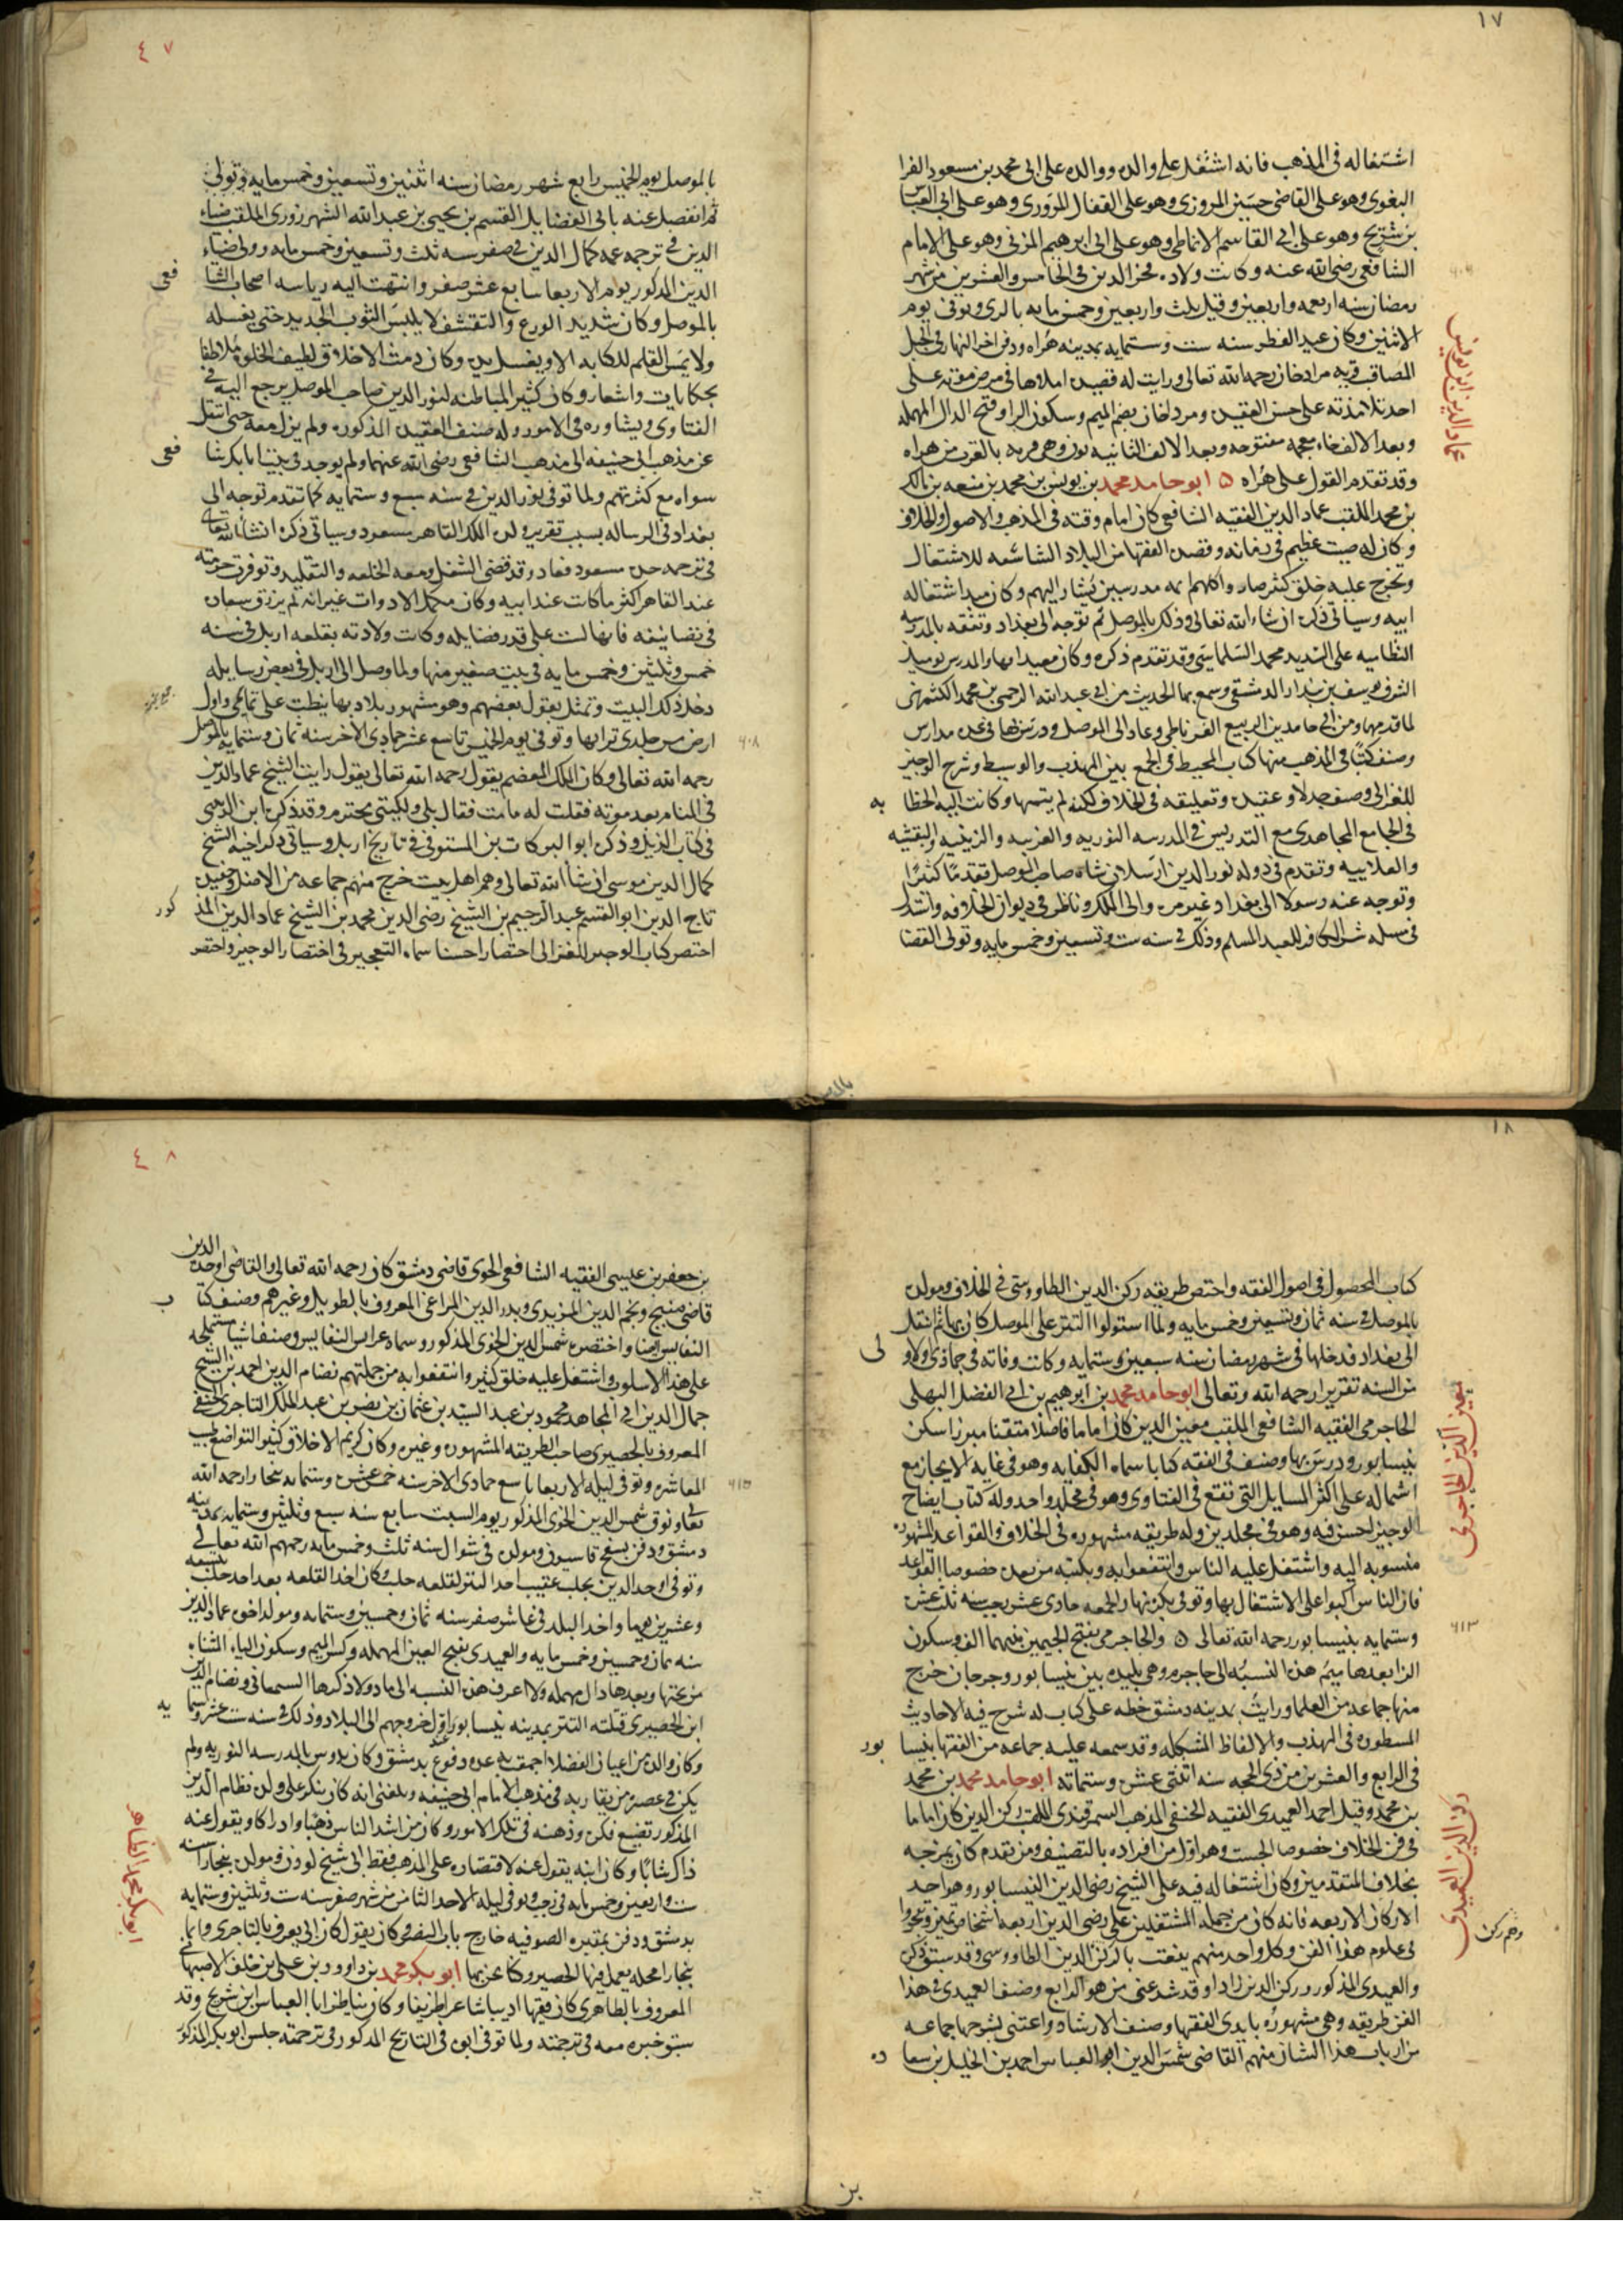 ١٧
اشتغاله في المذهب فانه اشتغل على والده ووالده على ابي محمد بن مسعود الفرا
البغوي وهو على القاضي حسين المروزي وهو على القفال المروزي وهو على ابي العباس
بن شريح وهو على ابي القاسم الانماطي وهو على ابي ابرهيم المزني وهو على الامام
الشافعي رضي الله عنه وكانت ولاده فخر الدين في الخامس والعشرين من شهر
رمضان سنه اربعه واربعين وقيل ثلث واربعين وخمس مايه بالري وتوفي يوم
الاثنين وكان عيد الفطر سنه ست وستمايه بمدينه هراه ودفن اخر النهار في الجبل
المصاقب قريه مرادخان رحمه الله تعالى ورايت له قصيده املاها في مرض موته على
احد تلامذته على حسن العقيده ومردخان بضم الميم وسكون الرا وفتح الدال المهمله
وبعد الالف خاء معجمه مفتوحه وبعد الالف الثانيه نون وهي قريه بالقرب من هراه
وقد تقدم القول على هراه ٥ ابو حامد محمد بن يونس بن محمد بن منعه بن مالك
بن محمد الملقب عماد الدين الفقيه الشافعي كان امام وقته في المذهب والاصول والخلاف
وكان له صيت عظيم في زمانه وقصده الفقها من البلاد الشاسعه للاشتغال
وتخرج عليه خلق كثير صاروا كلهم ايمه مدرسين يشار اليهم وكان مبدا اشتغاله
ابيه وسياتي ذكره ان شاء الله تعالى وذلك بالموصل ثم توجه الى بغداد وتفقه بالمدرسه
النظاميه على السديد محمد السلماسي وقد تقدم ذكره وكان معيدا بها والمدرس يوميذ
الشرف يوسف بن بندار الدمشقي وسمع بها الحديث من ابي عبد الله الرحمن بن محمد الكشميهني
لما قدمها ومن ابي حامد بن ابي الربيع الغرناطي وعاد الى الموصل ودرس بها في عده مدارس
وصنف كتبا في المذهب منها كتاب المحيط في الجمع بين المهذب والوسيط وشرح الوجيز
للغزالي وصنف جدلا وعقيده وتعليقه في الخلاف لكنه لم يتمها وكانت اليه الخطا به
في الجامع المجاهدي مع التدريس في المدرسه النوريه والعزيه والزينيه والبقشيه
والعلاييه وتقدم في دوله نور الدين ارسلان شاه صاحب الموصل تقدما كثيرا
وتوجه عنه رسولا الى بغداد غير مره والى الملك وناظر في ديوان الخلافه واستدل
في مسله شرا الكافر للعبد المسلم وذلك في سنه ست وتسعين وخمس مايه وتولى القضا
٦٠٦
عماد الدين ابن يونس
بالموصل
٤٧
بالموصل يوم الخميس رابع شهر رمضان سنه اثنين وتسعين وخمس مايه وتولى
ثم انفصل عنه بابي الفضايل القسم بن يحيى بن عبد الله الشهرزوري الملقب ضياء
الدين في ترجمه عمه كمال الدين في صفر سنه ثلث وتسعين وخمس مايه وولى ضياء
الدين المذكور يوم الاربعا سابع عشر صفر وانتهت اليه رياسه اصحاب الشا فعي
بالموصل وكان شديد الورع والتقشف لا يلبس الثوب الجديد حتى يغسله
ولا يمس القلم للكتابه الا ويغسل يده وكان دمث الاخلاق لطيف الخلوه ملاطفا
بحكايات واشعار وكان كثير المباطنه لنور الدين صاحب الموصل يرجع اليه في
الفتاوى ويشاوره في الامور وله صنف العقيده المذكوره ولم يزل معه حتى انتقل
عن مذهب ابي حنيفه الى مذهب الشافعي رضي الله عنهما ولم يوجد في بيت اتابك شا فعي
سواه مع كثرتهم ولما توفي نور الدين في سنه سبع وستمايه كما تقدم توجه الى
بغداد في الرساله بسبب تقرير ولده الملك القاهر مسعود وسياتي ذكره انشا الله تعالى
في ترجمه جده مسعود فعاد وقد قضى الشغل ومعه الخلعه والتقليد وتوفرت حرمته
عند القاهر اكثر ما كانت عند ابيه وكان مكمل الادوات غير انه لم يرزق سعاده
في تصانيفه فانها ليست على قدر فضايله وكانت ولادته بقلعه اربل في سنه
خمس وثلثين وخمس مايه في بيت صغير منها ولما وصل الى اربل في بعض رسايله
دخل ذلك البيت وتمثل بقول بعضهم وهو مشهور بلاد بها نيطت على تمايمي واول
ارض مس جلدي ترابها وتوفي يوم الخميس تاسع عشر جمادى الاخر سنه ثمان وستمايه بالموصل
رحمه الله تعالى وكان الملك المعظم يقول رحمه الله تعالى يقول رايت الشيخ عماد الدين
في المنام بعد موته فقلت له ما مت فقال بلى ولكنني محترم وقد ذكره ابن الدبيثي
في كتاب الذيل وذكره ابو البركات بن المستوفي في تاريخ اربل وسياتي ذكر اخيه الشيخ
كمال الدين موسى ان شا الله تعالى وهم اهل بيت خرج منهم جماعه من الافاضل وحفيده
تاج الدين ابو القسم عبد الرحيم بن الشيخ رضي الدين محمد بن الشيخ عماد الدين المذ كور
اختصر كتاب الوجيز للغزالي اختصارا حسنا سماه التعجيز في اختصار الوجيز واختصر
٦٠٨
١٨
كتاب المحصول في اصول الفقه واختصر طريقه ركن الدين الطاووسي في الخلاف ومولده
بالموصل في سنه ثمان وتسعين وخمس مايه ولما استولوا التتر على الموصل كان بها ثم انتقل
الى بغداد فدخلها في شهر رمضان سنه سبعين وستمايه وكانت وفاته في جمادى الاو لى
من السنه تقريبا رحمه الله وتعالى ابو حامد محمد بن ابرهيم بن ابي الفضل السهلي
الجاجرمي الفقيه الشافعي الملقب معين الدين كان اماما فاضلا متقنا مبرزا سكن
نيسابور ودرس بها وصنف في الفقه كتابا سماه الكفايه وهو في غايه الايجاز مع
اشماله على اكثر المسايل التي تقع في الفتاوى وهو في مجلد واحد وله كتاب ايضاح
الوجيز احسن فيه وهو في مجلدين وله طريقه مشهوره في الخلاف والقواعد المشهوره
منسوبه اليه واشتغل عليه الناس وانتفعوا به وبكتبه من بعده خصوصا القواعد
فان الناس اكبوا على الاشتغال بها وتوفي بكره نهار الجمعه حادي عشر رجب سنه ثلث عشره
وستمايه بنيسابور رحمه الله تعالى ٥ والجاجرمي بفتح الجيمين بينهما الف وسكون
الرا بعدها ميم هذه النسبه الى جاجرم وهي بليده بين نيسابور وجرجان خرج
منها جماعه من العلما ورايت بمدينه دمشق خطه على كتاب له شرح فيه الاحاديث
المسطوره في المهذب والالفاظ المشكله وقد سمعه عليه جماعه من الفقها بنيسا بور
في الرابع والعشرين من ذي الحجه سنه اثنتي عشره وستمائه ابو حامد محمد بن محمد
بن محمد وقيل احمد العميدي الفقيه الحنفي المذهب السمرقندي الملقب ركن الدين كان اماما
في فن الخلاف خصوصا الجست وهو اول من افرده بالتصنيف ومن تقدم كان يمزجه
بخلاف المتقدمين وكان اشتغاله فيه على الشيخ رضي الدين النيسابوري وهو احد
الاركان الاربعه فانه كان من جمله المشتغلين على رضي الدين اربعه اشخاص تميزوا وتبحروا
في علوم هذا الفن وكل واحد منهم ينعت بالركن ركن الدين الطاووسي وقد سبق ذكره
والعميدي المذكور وركن الدين زادا وقد شد عني من هو الرابع وصنف العميدي في هذا
الفن طريقه وهي مشهوره بايدي الفقها وصنف الارشاد واعتنى بشرحها جماعه
من ارباب هذا الشان منهم القاضي شمس الدين ابو العباس احمد بن الخليل بن سعا ده
معين الدين الجاجرمي
٦١٣
ركن الدين العميدي
بن
٤٨
بن جعفر بن عيسى الفقيه الشافعي الخوي قاضي دمشق كان رحمه الله تعالى والقاضي اوحد الدين
قاضي منبج ونجم الدين المرندي وبدر الدين المراغي المعروف بالطويل وغيرهم وصنف كتا ب
النفايس ايضا واختصره شمس الدين الخوي المذكور وسماه عرايس النفايس وصنف اشيا مستملحه
على هذا الاسلوب واشتغل عليه خلق كثير وانتفعوا به من جملتهم نضام الدين احمد بن الشيخ
جمال الدين ابي المجاهد محمود بن عبد السيد بن عثمان بن نصر بن عبد الملك التاجري الحنفي
المعروف بالحصيري صاحب الطريقه المشهوره وغيره وكان كريم الاخلاق كثير التواضع طيب
المعاشره وتوفي ليله الاربعا تاسع جمادى الاخر سنه خمس عشره وستمايه ببخارا رحمه الله
تعالى وتوفي شمس الدين الخوي المذكور يوم السبت سابع سنه سبع وثلثين وستمايه بمدينه
دمشق ودفن بسفح قاسيون ومولده في شوال سنه ثلث وخمس مايه رحمهم الله تعالى
وتوفي اوحد الدين بحلب عقيب اخذ التتر لقلعه حلب وكان اخذ القلعه بعد اخذ حلب بتسعه
وعشرين يوما واخذ البلد في عاشر صفر سنه ثمان وخمسين وستمايه ومولد اخوه عماد الدين
سنه ثمان وخمسين وخمس مايه والعميدي بفتح العين المهمله وكسر الميم وسكون الياء المثناه
من تحتها وبعدها دال مهمله ولا اعرف هذه النسبه الى ماذا ولا ذكرها السمعاني ونضام الدين
ابن الحصيري قتلته التتر بمدينه نيسابور اول خروجهم الى البلاد وذلك في سنه ست عشره وستما يه
وكان والده من اعيان الفضلا اجتمعت به عده دفوع بدمشق وكان يدرس بالمدرسه النوريه ولم
يكن في عصره من يقاربه في مذهب الامام ابي حنيفه وبلغني انه كان ينكر على ولده نظام الدين
المذكور تضيع فكره وذهنه في تلك الامور وكان من اشد الناس ذهنا وادراكا ويقول عنه
ذاكر شابا وكان ابنه يقول عنه لاقتصاره على المذهب فقط ابي شيخ لودن ومولده ببخارا سنه
ست واربعين وخمس مايه في رجب وتوفي ليله الاحد الثامن من شهر صفر سنه ست وثلثين وستمايه
بدمشق ودفن بمقبره الصوفيه خارج باب النصر وكان يقول كان ابي يعرف بالتاجري وانما
ببخارا محله يعمل فيها الحصير وكنا عن بها ابو بكر محمد بن داوود بن علي بن خلف الاصبهاني
المعروف بالطاهري كان فقيها اديبا شاعرا ظريفا وكان يناظر ابا العباس ابن شريح وقد
سبق خبره معه في ترجمته ولما توفي ابوه في التاريخ المذكور في ترجمته جلس ابو بكر المذكور
٦١٥
ابو بكر محمد الظاهر